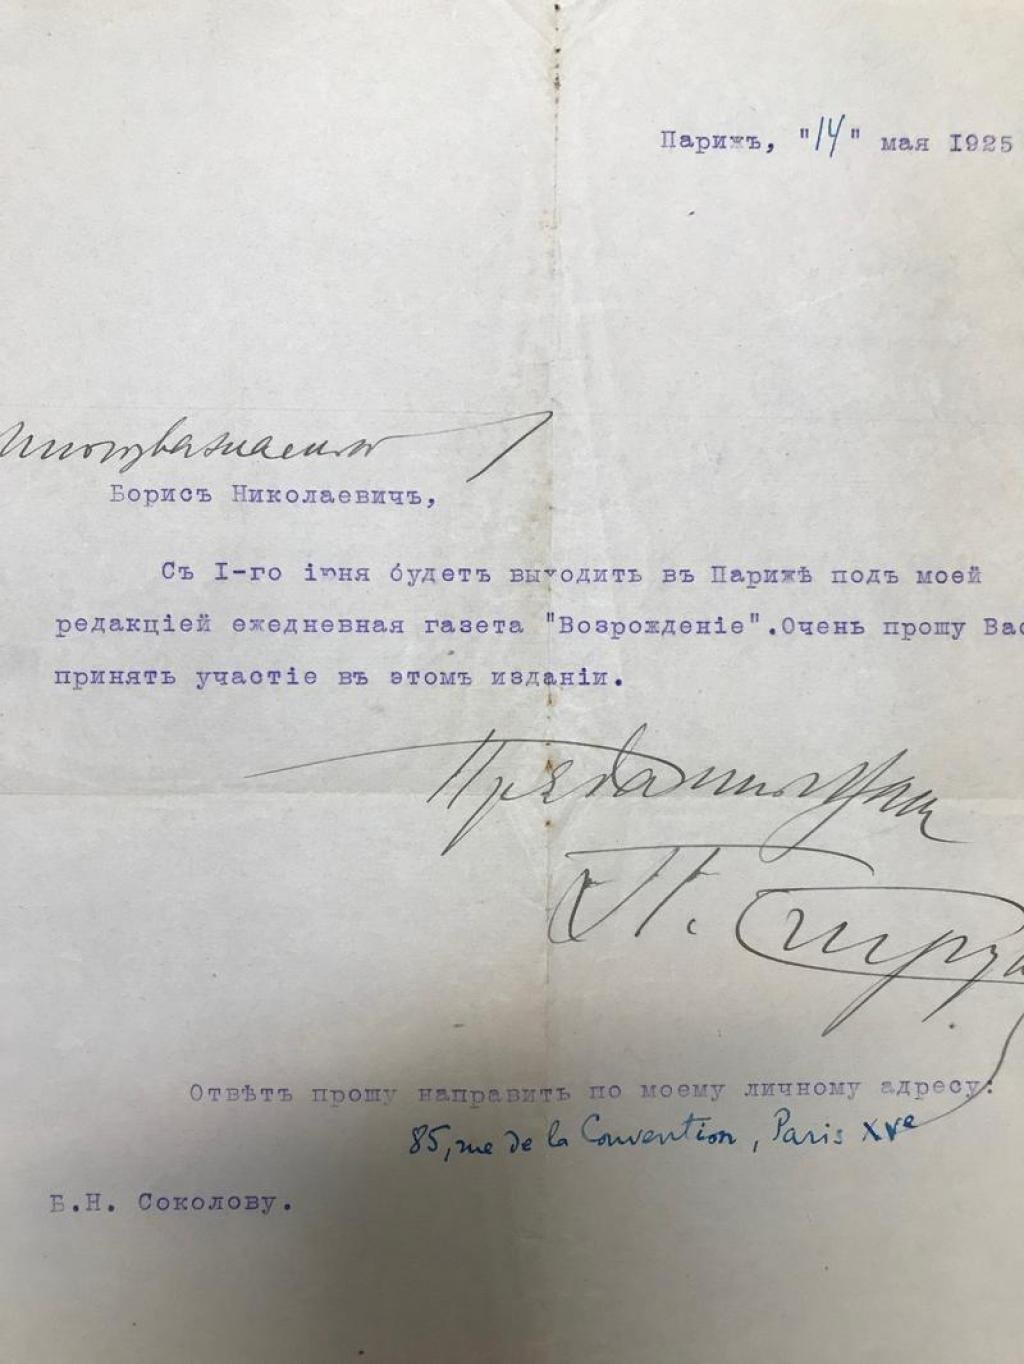 Парижъ, "14" мая I925
Многоуважаемый
Борисъ Николаевичъ,
Съ I-го iюня будетъ выходить въ Парижѣ подъ моей
редакцiей ежедневная газета "Возрожденiе".Очень прошу Вас
принять участiе въ этомъ изданiи.
Преданный Вам
П. Струве
Отвѣтъ прошу направить по моему личному адресу:
85, rue de la Convention, Paris XVe
Б.Н. Соколову.